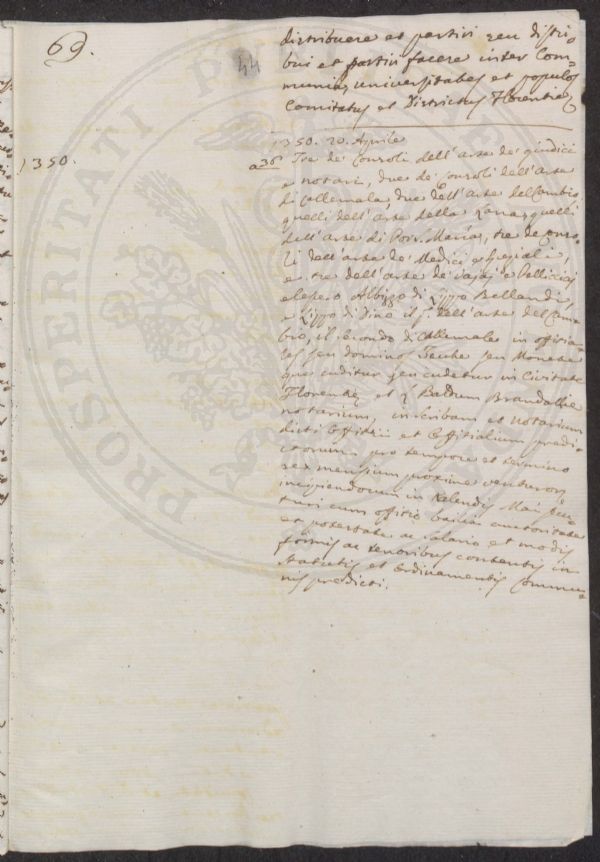 69.
44
distribuere et partiri seu distri-
bui et partiri facere inter Com=
munia, universitates et populos
Comitatus et Districtus Florentie
1350.
1350. 20. Aprile
a 36 Tre de Consoli dell'arte de giudici
e notari, due de Consoli dell'arte
di Callemala, due dell'arte del Cambio
quelli dell'arte della Lana, quelli
dell'arte di Por S. Maria, tre de Conso-
li dell'arte de Medici e Speziali,
e tre dell'arte de Vaiai e Pellicciai
elessero Albizzo di Lippo Bellandi,
e Lippo di Dino il p.º dell'arte del Cam-
bio, il secondo di Callemala in offitia-
les seu dominos Zeche seu Monete
que cuditur seu cudetur in Civitate
Florentie et Baldum Brandaglie
notarium, in scribam et notarium
dicti Offitii et Offitialium predi-
ctorum pro tempore et termino
sex mensium proxime venturor.
incipiendorum in Kalendis Maii fu-
turi cum offitio bailia auctoritate
et potestate ac salario et modis
formis ac tenoribus contentis in
statutis et Ordinamentis Commu-
nis predicti.
PROSPERITATI PVBLICAE